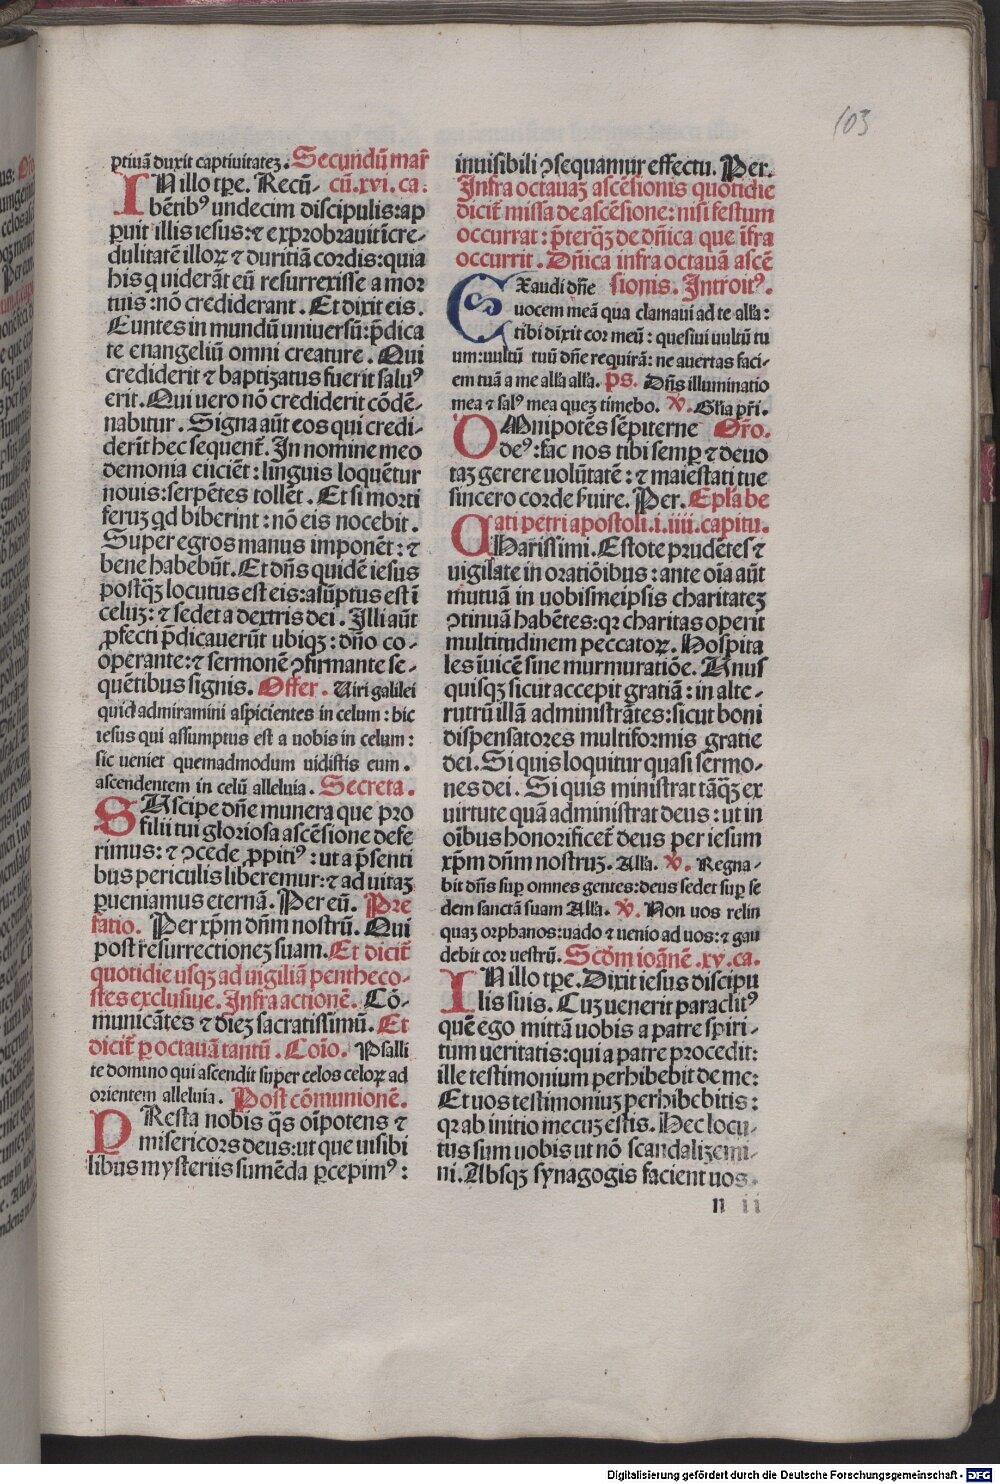 103
ptiuā duxit captiuitatez. Secundū mar̄
IN illo tp̄e. Recū- cū.xvi.ca.
bētibꝰ undecim discipulis: ap
paruit illis iesus: ⁊ exprobrauit īcre-
dulitatē illoꝝ ⁊ duritiā cordis: quia
his q uiderāt eū resurrexisse a mor
tuis: nō crediderant. Et dixit eis.
Euntes in mundū uniuersū: p̄dica
te euangeliū omni creature. Qui
crediderit ⁊ baptizatus fuerit saluꝰ
erit. Qui uero nō crediderit cōdē-
nabitur. Signa aūt eos qui credi-
derīt hec sequent̄. In nomine meo
demonia eiiciēt: linguis loquētur
nouis: serpētes tollēt. Et si morti
feruz qd biberint: nō eis nocebit.
Super egros manus imponēt: ⁊
bene habebūt. Et dn̄s quidē iesus
postq̄ꝫ locutus est eis: asūptus est ī
celuz: ⁊ sedet a dextris dei. Illi aūt
ꝓfecti p̄dicauerūt ubiqꝫ: dn̄o co-
operante: ⁊ sermonē ꝯfirmante se-
quētibus signis. Offer. Uiri galilei
quid admiramini aspicientes in celum: hic
iesus qui assumptus est a uobis in celum:
sic ueniet quemadmodum uidistis eum.
ascendentem in celū alleluia. Secreta.
SUscipe dn̄e munera que pro
filii tui gloriosa ascēsione defe
rimus: ⁊ ꝯcede ꝓpitiꝰ: ut a p̄senti
bus periculis liberemur: ⁊ ad uitaz
ꝑueniamus eternā. Per eū. Pre
fatio. Per xp̄m dn̄m nostrū. Qui
post resurrectionez suam. Et dicit̄
quotidie usqꝫ ad uigiliā pentheco-
stes exclusiue. Infra actionē. Cō-
municātes ⁊ diez sacratissimū. Et
dicit̄ ꝑ octauā tantū. Cōio. Psalli
te domino qui ascendit super celos celoꝝ ad
orientem alleluia. Post cōmunionē.
PResta nobis q̄s oīpotens ⁊
misericors deus: ut que uisibi
libus mysteriis sumēda ꝑcepimꝰ:
inuisibili ꝯsequamur effectu. Per.
Infra octauaz ascēsionis quotidie
dicit̄ missa de ascēsione: nisi festum
occurrat: p̄terq̄ꝫ de dn̄ica que īfra
occurrit. Dn̄ica infra octauā ascē
EXaudi dn̄e sionis. Introitꝰ.
uocem meā qua clamaui ad te alla:
tibi dixit cor meū: quesiui uultū tu
um: uultū tuū dn̄e requirā: ne auertas faci-
em tuā a me alla alla. ps. Dn̄s illuminatio
mea ⁊ salꝰ mea quez timebo. ℣. Gl̄ia pr̄i.
OMnipotēs sēpiterne Oro.
deꝰ: fac nos tibi semꝑ ⁊ deuo
taz gerere volūtatē: ⁊ maiestati tue
sincero corde ſuire. Per. Epl̄a be
ati petri apostoli.i.iiii.capitu.
CHarissimi. Estote prudētes ⁊
uigilate in oratiōibus: ante oīa aūt
mutuā in uobismetipsis charitatez
ꝯtinuā habētes: qꝛ charitas operit
multitudinem peccatoꝝ. Hospita
les īuicē sine murmuratiōe. Unus
quisqꝫ sicut accepit gratiā: in alte-
rutrū illā administrātes: sicut boni
dispensatores multiformis gratie
dei. Si quis loquitur quasi sermo-
nes dei. Si quis ministrat tāq̄ꝫ ex
uirtute quā administrat deus: ut in
oībus honorificet̄ deus per iesum
xp̄m dn̄m nostruz. Alla. ℣. Regna-
bit dn̄s suꝑ omnes gentes: deus sedet suꝑ se
dem sanctā suam Alla. ℣. Non uos relin
quaz orphanos: uado ⁊ uenio ad uos: ⁊ gau
debit cor uestrū. Scd̄m ioānē.xv.ca.
IN illo tp̄e. Dixit iesus discipu
lis suis. Cuz uenerit paraclitꝰ
quē ego mittā uobis a patre spiri-
tum ueritatis: qui a patre procedit:
ille testimonium perhibebit de me:
Et uos testimoniuz perhibebitis:
qꝛ ab initio mecuz estis. Hec locu-
tus sum uobis ut nō scandalizemi-
ni. Absqꝫ synagogis facient uos.
n ii
Digitalisierung gefördert durch die Deutsche Forschungsgemeinschaft - DFG